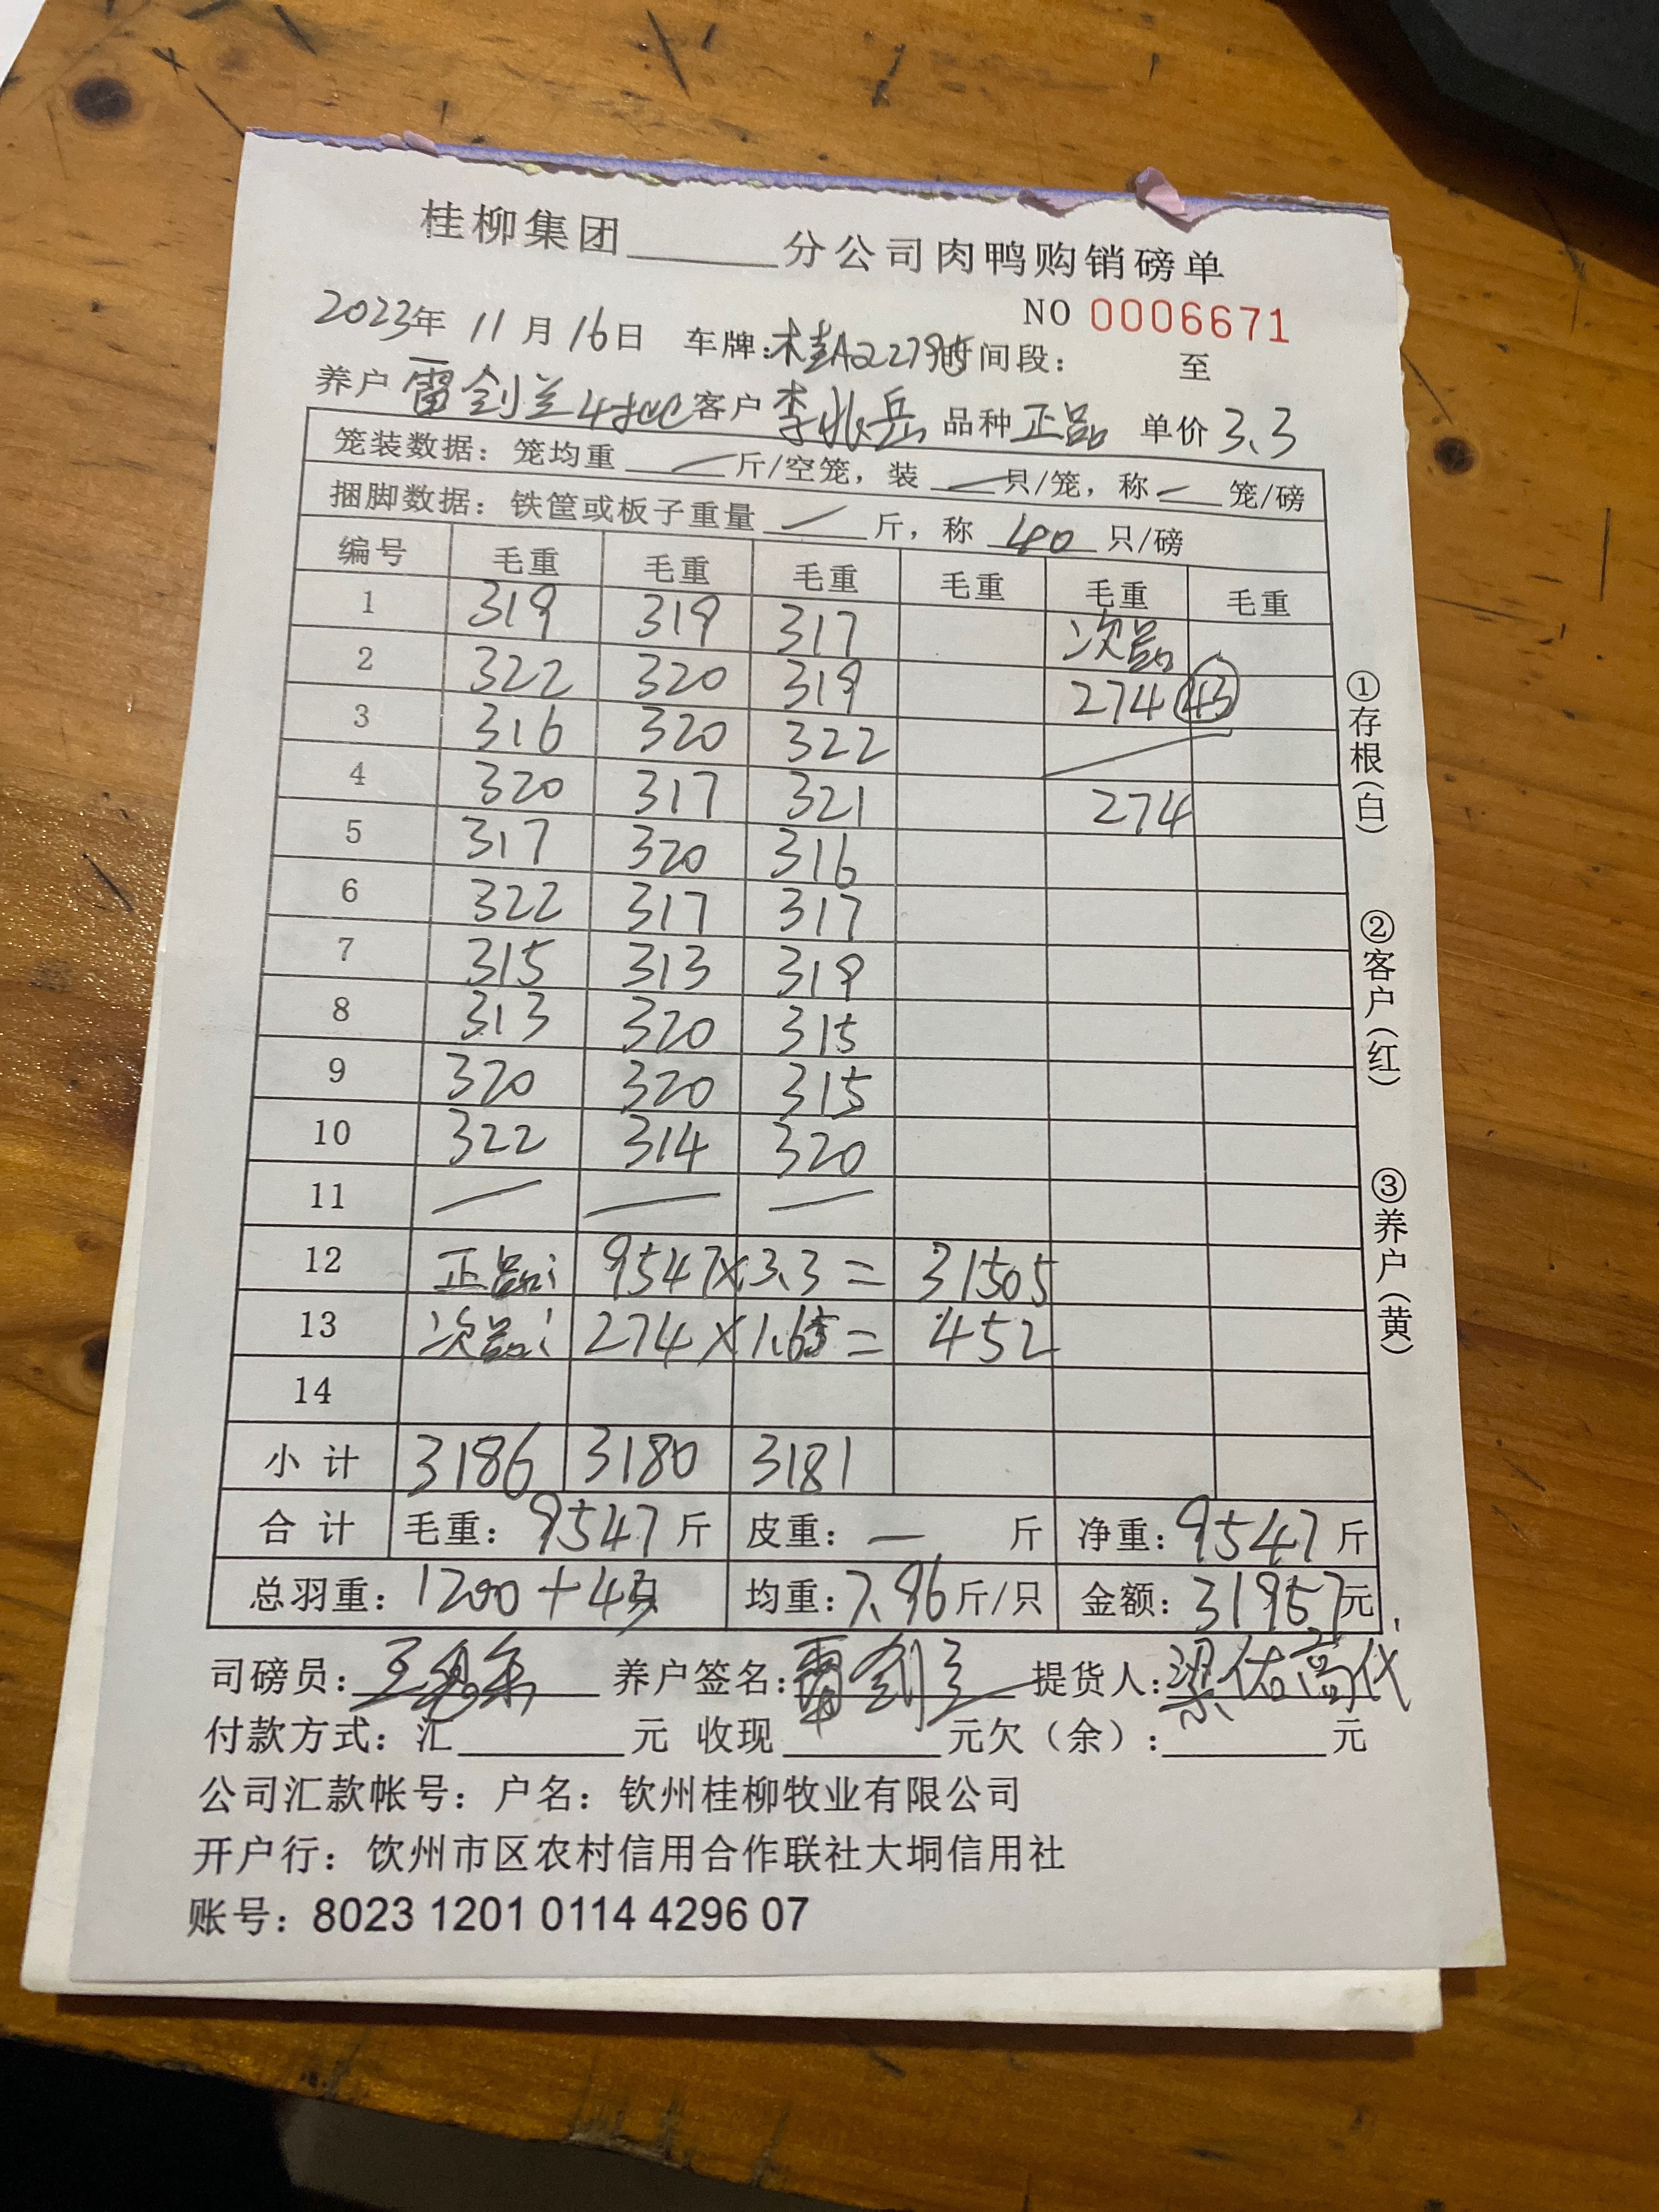 桂柳集团______分公司肉鸭购销磅单
NO 0006671
2023年 11月16日 车牌:桂A22795 时间段: 至
养户 雷剑兰4批 客户 李兆岳 品种 正品 单价 3.3
笼装数据: 笼均重 — 斤/空笼, 装 — 只/笼, 称 — 笼/磅
捆脚数据: 铁筐或板子重量 — 斤, 称 40 只/磅
编号 毛重 毛重 毛重 毛重 毛重 毛重
1 319 319 317 次品
2 322 320 319 274 43
3 316 320 322 —
4 320 317 321 274
5 317 320 316
6 322 317 317
7 315 313 319
8 313 320 315
9 320 320 315
10 322 314 320
11 — — —
12 正品: 9547×3.3= 31505
13 次品: 274×1.65= 452
14
小计 3186 3180 3181
合计 毛重: 9547 斤 皮重: — 斤 净重: 9547 斤
总羽重: 1200+43 均重: 7.96 斤/只 金额: 31957元
司磅员: 养户签名: 雷剑兰 提货人: 梁佑高代
付款方式: 汇______元 收现______元欠(余):______元
公司汇款帐号: 户名: 钦州桂柳牧业有限公司
开户行: 钦州市区农村信用合作联社大垌信用社
账号: 8023 1201 0114 4296 07
①存根(白)
②客户(红)
③养户(黄)